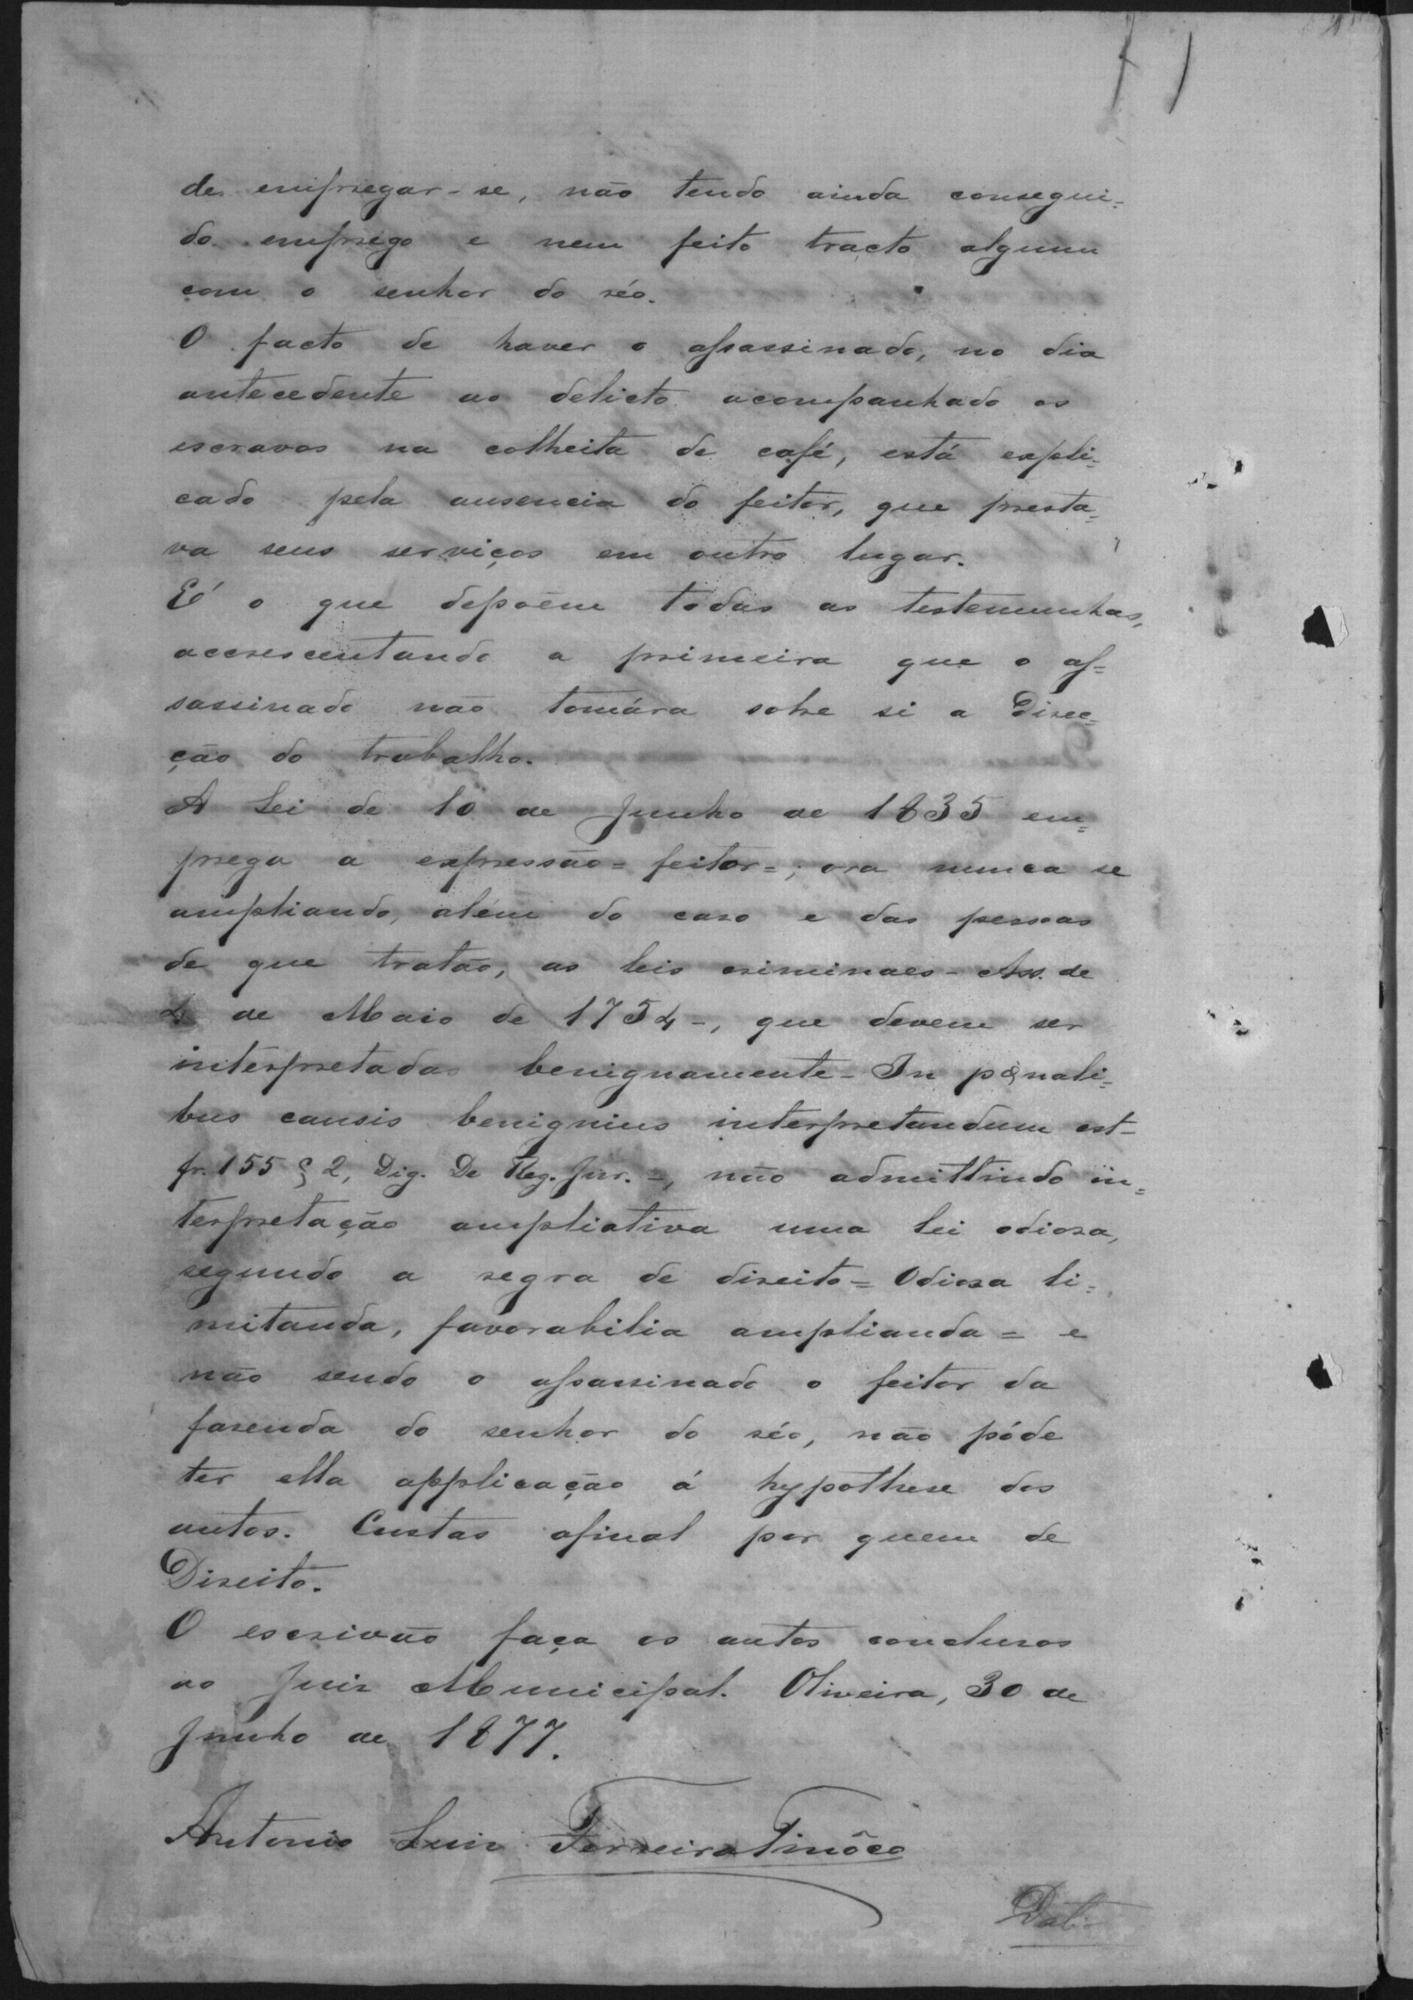 de empregar-se, não tendo ainda consegui-
do emprego e nem feito tracto algum
com o senhor do réo.
O facto de haver o assassinado, no dia
antecedente ao delicto acompanhado os
escravos na colheita de café, está expli-
cado pela ausencia do feitor, que presta-
va seus serviços em outro lugar.
É o que depoêm todas as testemunhas,
accrescentando a primeira que o as-
sassinado não tomára sobre si a direc-
ção do trabalho.
A Lei de 10 de Junho de 1835 em-
prega a expressão = feitor =; ora nunca se
ampliando, além do caso e das pessoas
de que tratão, as leis criminaes - Ass. de
4 de Maio de 1754 -, que devem ser
interpretadas benignamente - In pœnali-
bus causis benignius interpretandum est -
fr. 155 § 2, Dig. De Reg. Jur. -, não admittindo in-
terpretação ampliativa uma lei odiosa,
segundo a regra de direito = Odiosa li-
mitanda, favorabilia amplianda = e
não sendo o assassinado o feitor da
fazenda do senhor do réo, não póde
ter ella applicação á hypothese dos
autos. Custas afinal por quem de
Direito.
O escrivão faça os autos conclusos
ao Juiz Municipal. Oliveira, 30 de
Junho de 1877.
Antonio Luiz Ferreira Tinôco